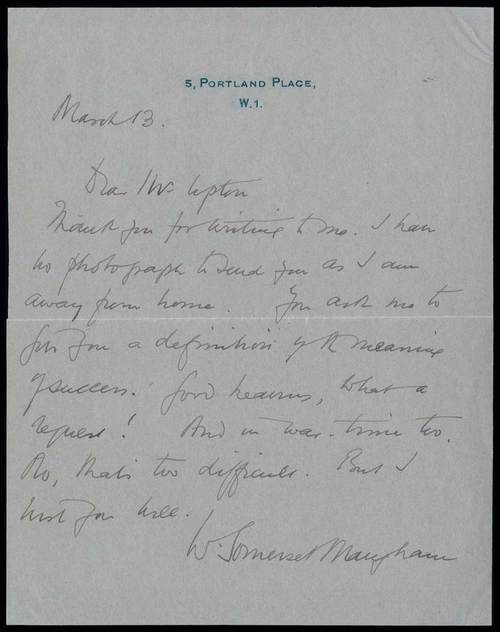 5, PORTLAND PLACE,
W.1.
March 13.
Dear Mr Upton
Thank you for writing to me. I have
no photograph to send you as I am
away from home. You ask me to
give you a definition of the meaning
of success. Good heavens, what a
request! And in war-time too.
No, that's too difficult. But I
wish you well.
W. Somerset Maugham